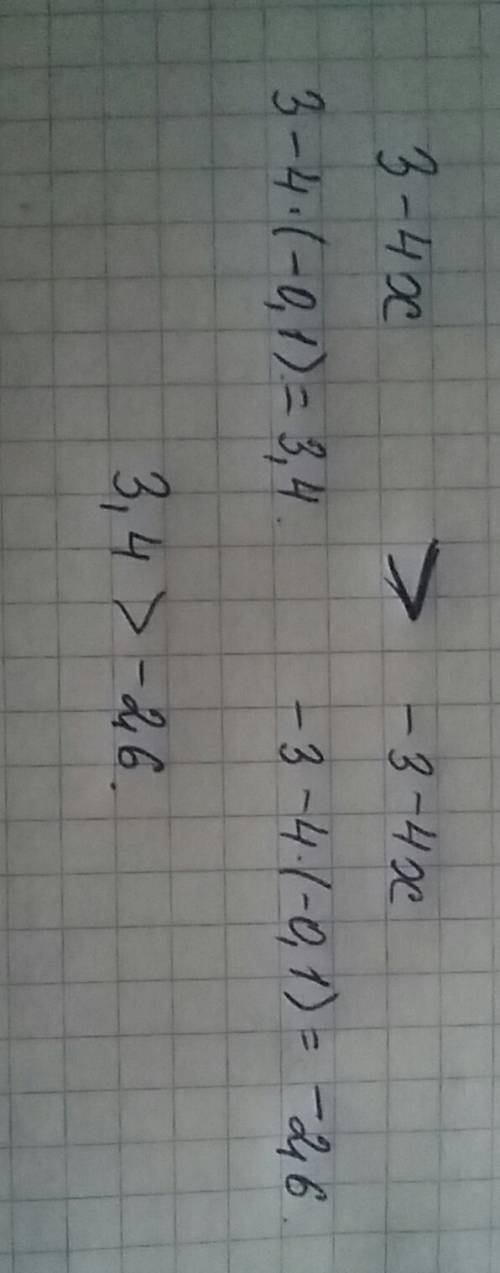 3 - 4x > -3 - 4x
3 - 4·(-0,1) = 3,4. -3 - 4·(-0,1) = -2,6.
3,4 > -2,6.